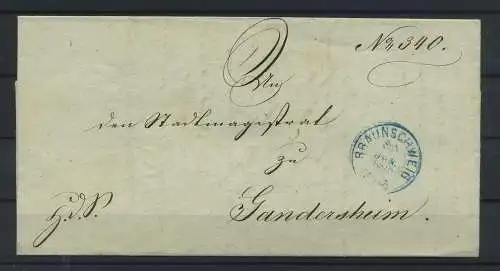 No 340.
An
den Stadtmagistrat
zu
H.d.S.
Gandersheim.
BRAUNSCHWEIG